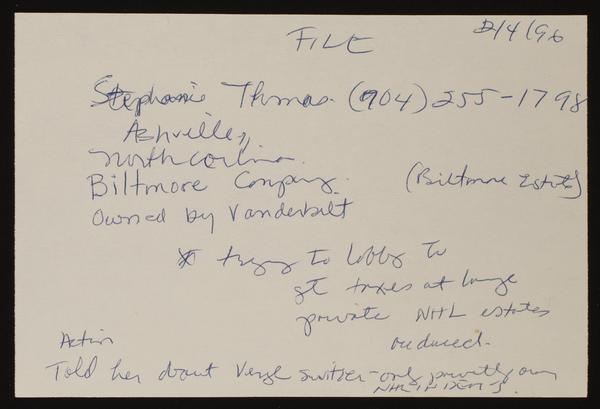 FILE
2/4/96
Stephanie Thomas. (704) 255-1798
Ashville,
North Carlina.
Biltmore Company. (Biltmore Estate)
Owned by Vanderbilt
* trying to lobby to
get taxes at large
private NHL estates
reduced.
Action
Told her about Verge Switzer - only privately own
NHL IN